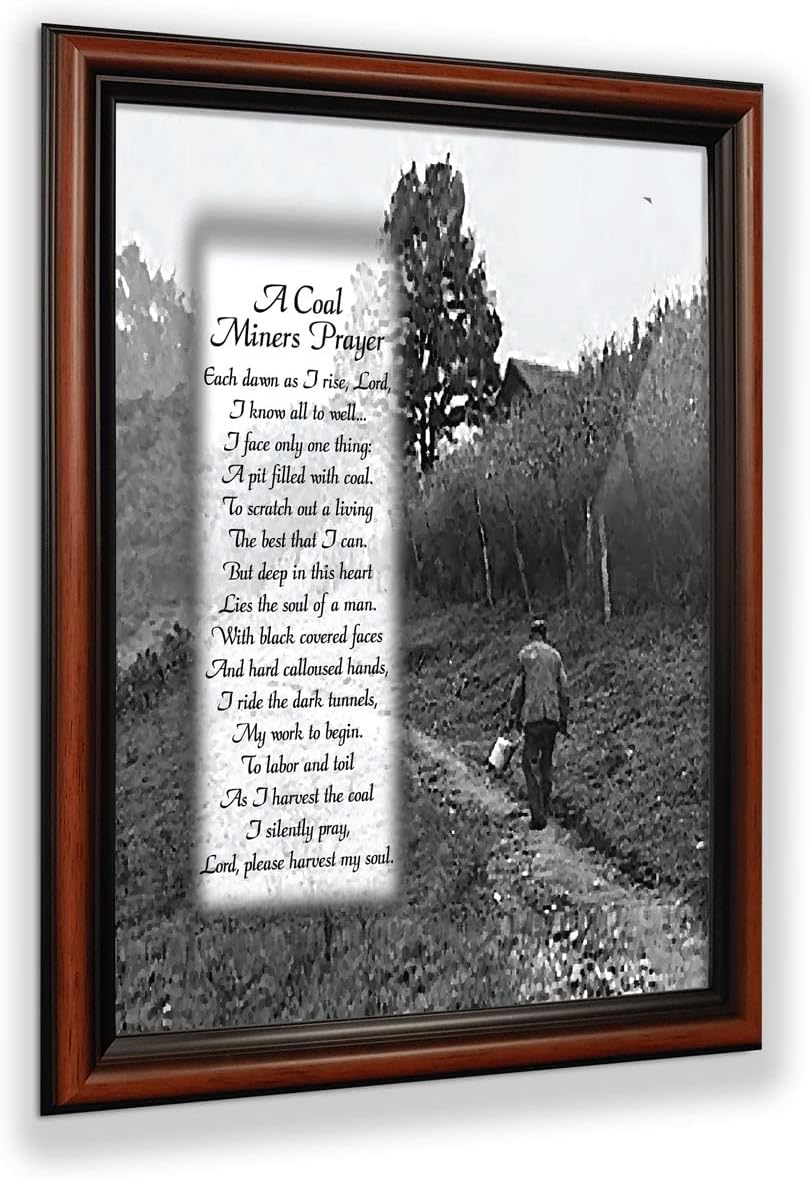 A Coal
Miners Prayer
Each dawn as I rise, Lord,
I know all to well...
I face only one thing:
A pit filled with coal.
To scratch out a living
The best that I can.
But deep in this heart
Lies the soul of a man.
With black covered faces
And hard calloused hands,
I ride the dark tunnels,
My work to begin.
To labor and toil
As I harvest the coal
I silently pray,
Lord, please harvest my soul.